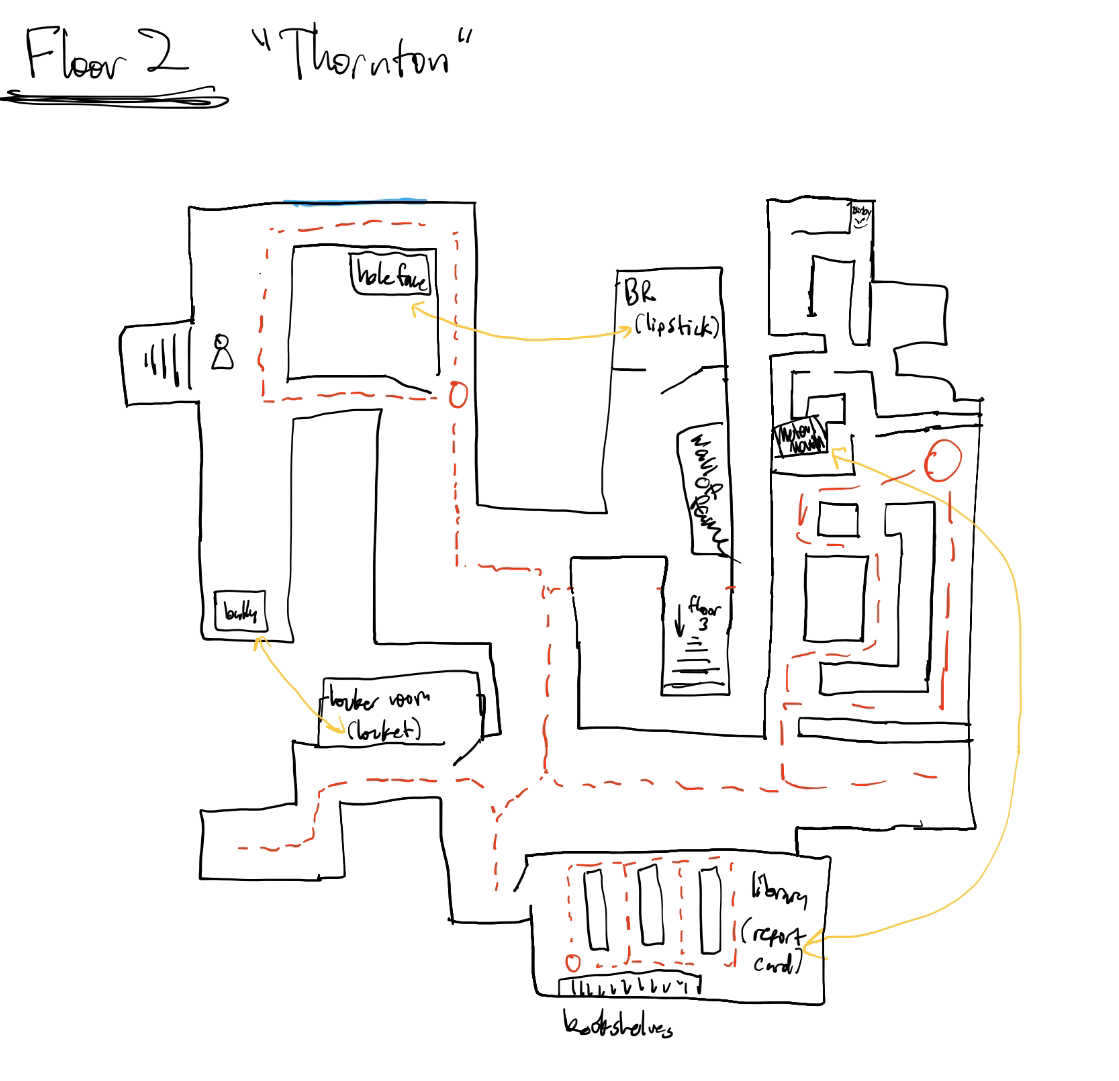 Floor 2 "Thornton"
hole face
BR
(lipstick)
wall of fame
floor
3
bully
locker room
(locket)
library
(report
card)
bookshelves